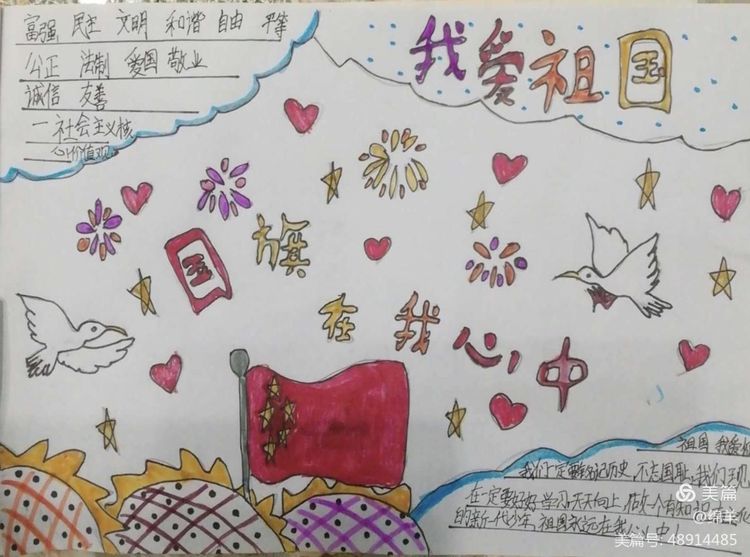 富强 民主 文明 和谐 自由 平等
公正 法制 爱国 敬业
诚信 友善
一社会主义核
心价值观
我爱祖国
国旗
在我心中
祖国 我爱你
我们一定要铭记历史,不忘国耻,我们
在一定要好好学习,天天向上,做一个有知识
的新一代少年,祖国永远在我心中!
美篇
@绵羊
美篇号: 48914485